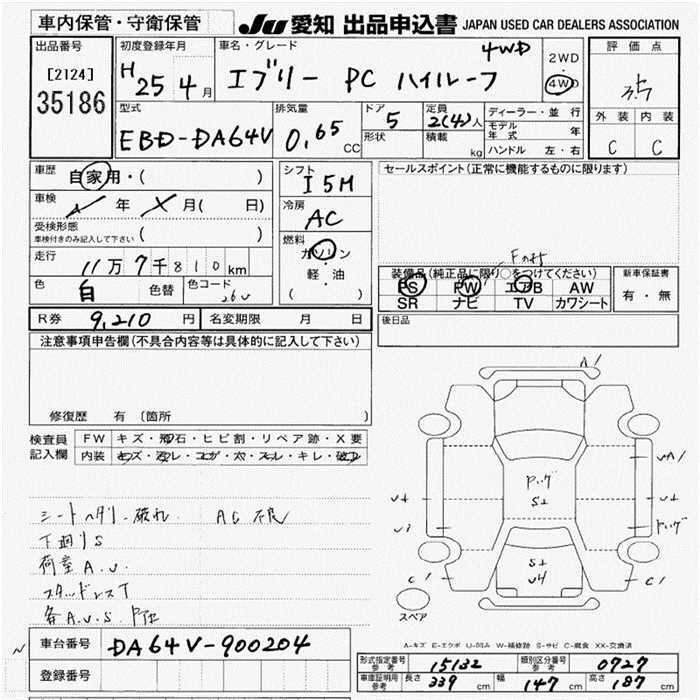 車内保管・守衛保管
JU 愛知 出品申込書 JAPAN USED CAR DEALERS ASSOCIATION
出品番号
[2124]
35186
初度登録年月
H 25 4 月
車名・グレード
エブリー PC ハイルーフ 4WD
2WD
・
4WD
評価点
3.5
外装 内装
C C
型式
EBD-DA64V
排気量
0.65 CC
ドア 5
形状
定員 2(4)人
積載 kg
ディーラー・並行
モデル年式 年
ハンドル 左・右
車歴
自家用・( )
車検
年 月( 日)
受検形態
車検付きのみ記入して下さい ( )
走行
11万7千810km
色 白 色替
色コード 26U
シフト
I5M
冷房
AC
燃料
ガソリン
・
軽・油
( )
セールスポイント(正常に機能するものに限ります)
装備品(純正品に限り○をつけてください)
PS PW エアB AW
SR ナビ TV カワシート
新車保証書
有・無
後日品
R券 9,210 円 名変期限 月 日
注意事項申告欄(不具合内容等は具体的に記入して下さい)
修復歴 有 〔箇所 〕
検査員記入欄
FW キズ・飛石・ヒビ割・リペア跡・X要
内装 キズ・汚レ・コゲ・穴・スレ・キレ・破レ
シートヘタリ 破れ AC 不良
下廻りS
荷室A.U.
スタッドレスT
各A.U.S.
A1
UA1
U1
C1
C1
スペア
A-キズ E-エクボ U-凹み W-補修跡 S-サビ C-腐食 XX-交換済
車台番号 DA64V-900204
登録番号
形式指定番号 参考 15132 類別区分番号 参考 0727
車庫証明用 参考 長さ 339 cm 幅 147 cm 高さ 187 cm